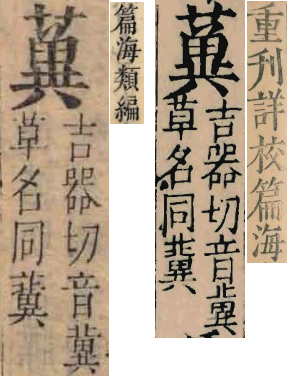 重刊詳校篇海
吉器切音冀
草名同冀
篇海類編
吉器切音冀
草名同冀